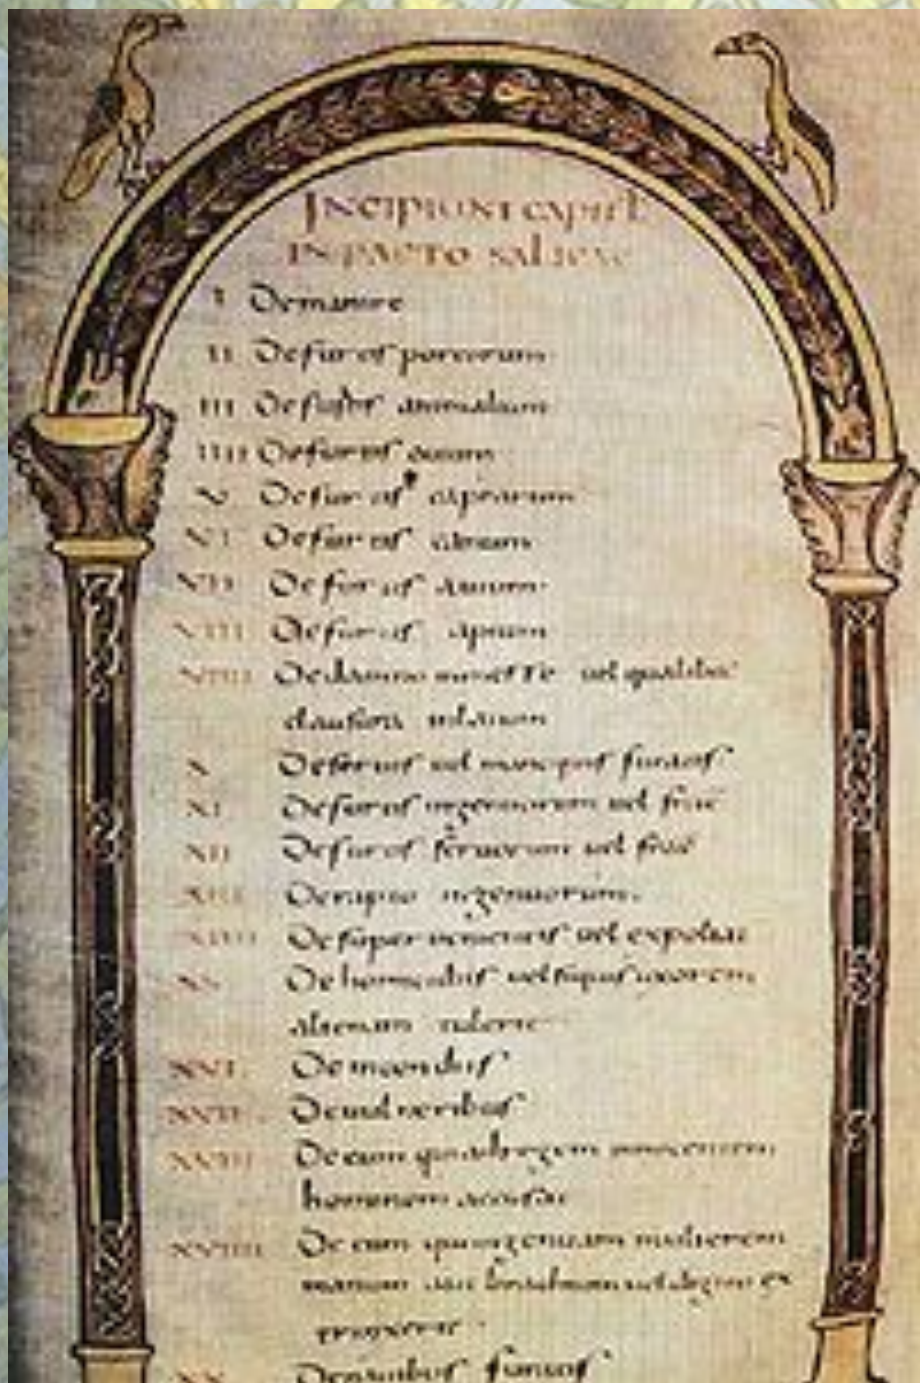 INCIPIUNT CAPITL
IN PACTO SALICAE
I De mannire
II De furtis porcorum
III De furtis animalium
IIII De furtis ouium
V De furtis caprarum
VI De furtis canum
VII De furtis auium
VIII De furtis apium
VIIII De damno in messe uel qualibet
clausura inlatum
X De seruis uel mancipiis furatis
XI De furtis ingenuorum uel
XII De furtis seruorum uel
XIII De rapto ingenuorum
XIIII De superuenientis uel expoliat
XV De homicidiis uel si quis uxorem
alienam tulerit
XVI De incendiis
XVII De uulneribus
XVIII De eum qui ad regem innocentem
hominem accusat
XVIIII De eum qui ingenuam mulierem
manum aut brachium uel digitum ex
trinxerit
XX De nauibus furatis